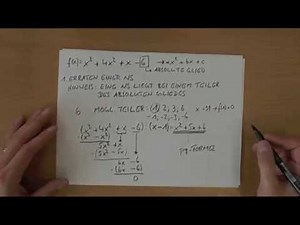 f(x)= x³ + 4x² + x - 6 → ax² + bx + c
↳ ABSOLUTE GLIED
1. ERRATEN EINER NS
HINWEIS: EINE NS LIEGT BEI EINEM TEILER
DES ABSOLUTEN GLIEDES
6 MÖGL TEILER: 1, 2, 3, 6
-1, -2, -3, -6
(x³ + 4x² + x - 6) : (x - 1) = x² + 5x + 6
-(x³ - x²)
5x² + x
-(5x² - 5x)
6x - 6
-(6x - 6)
0
pq-FORMEL